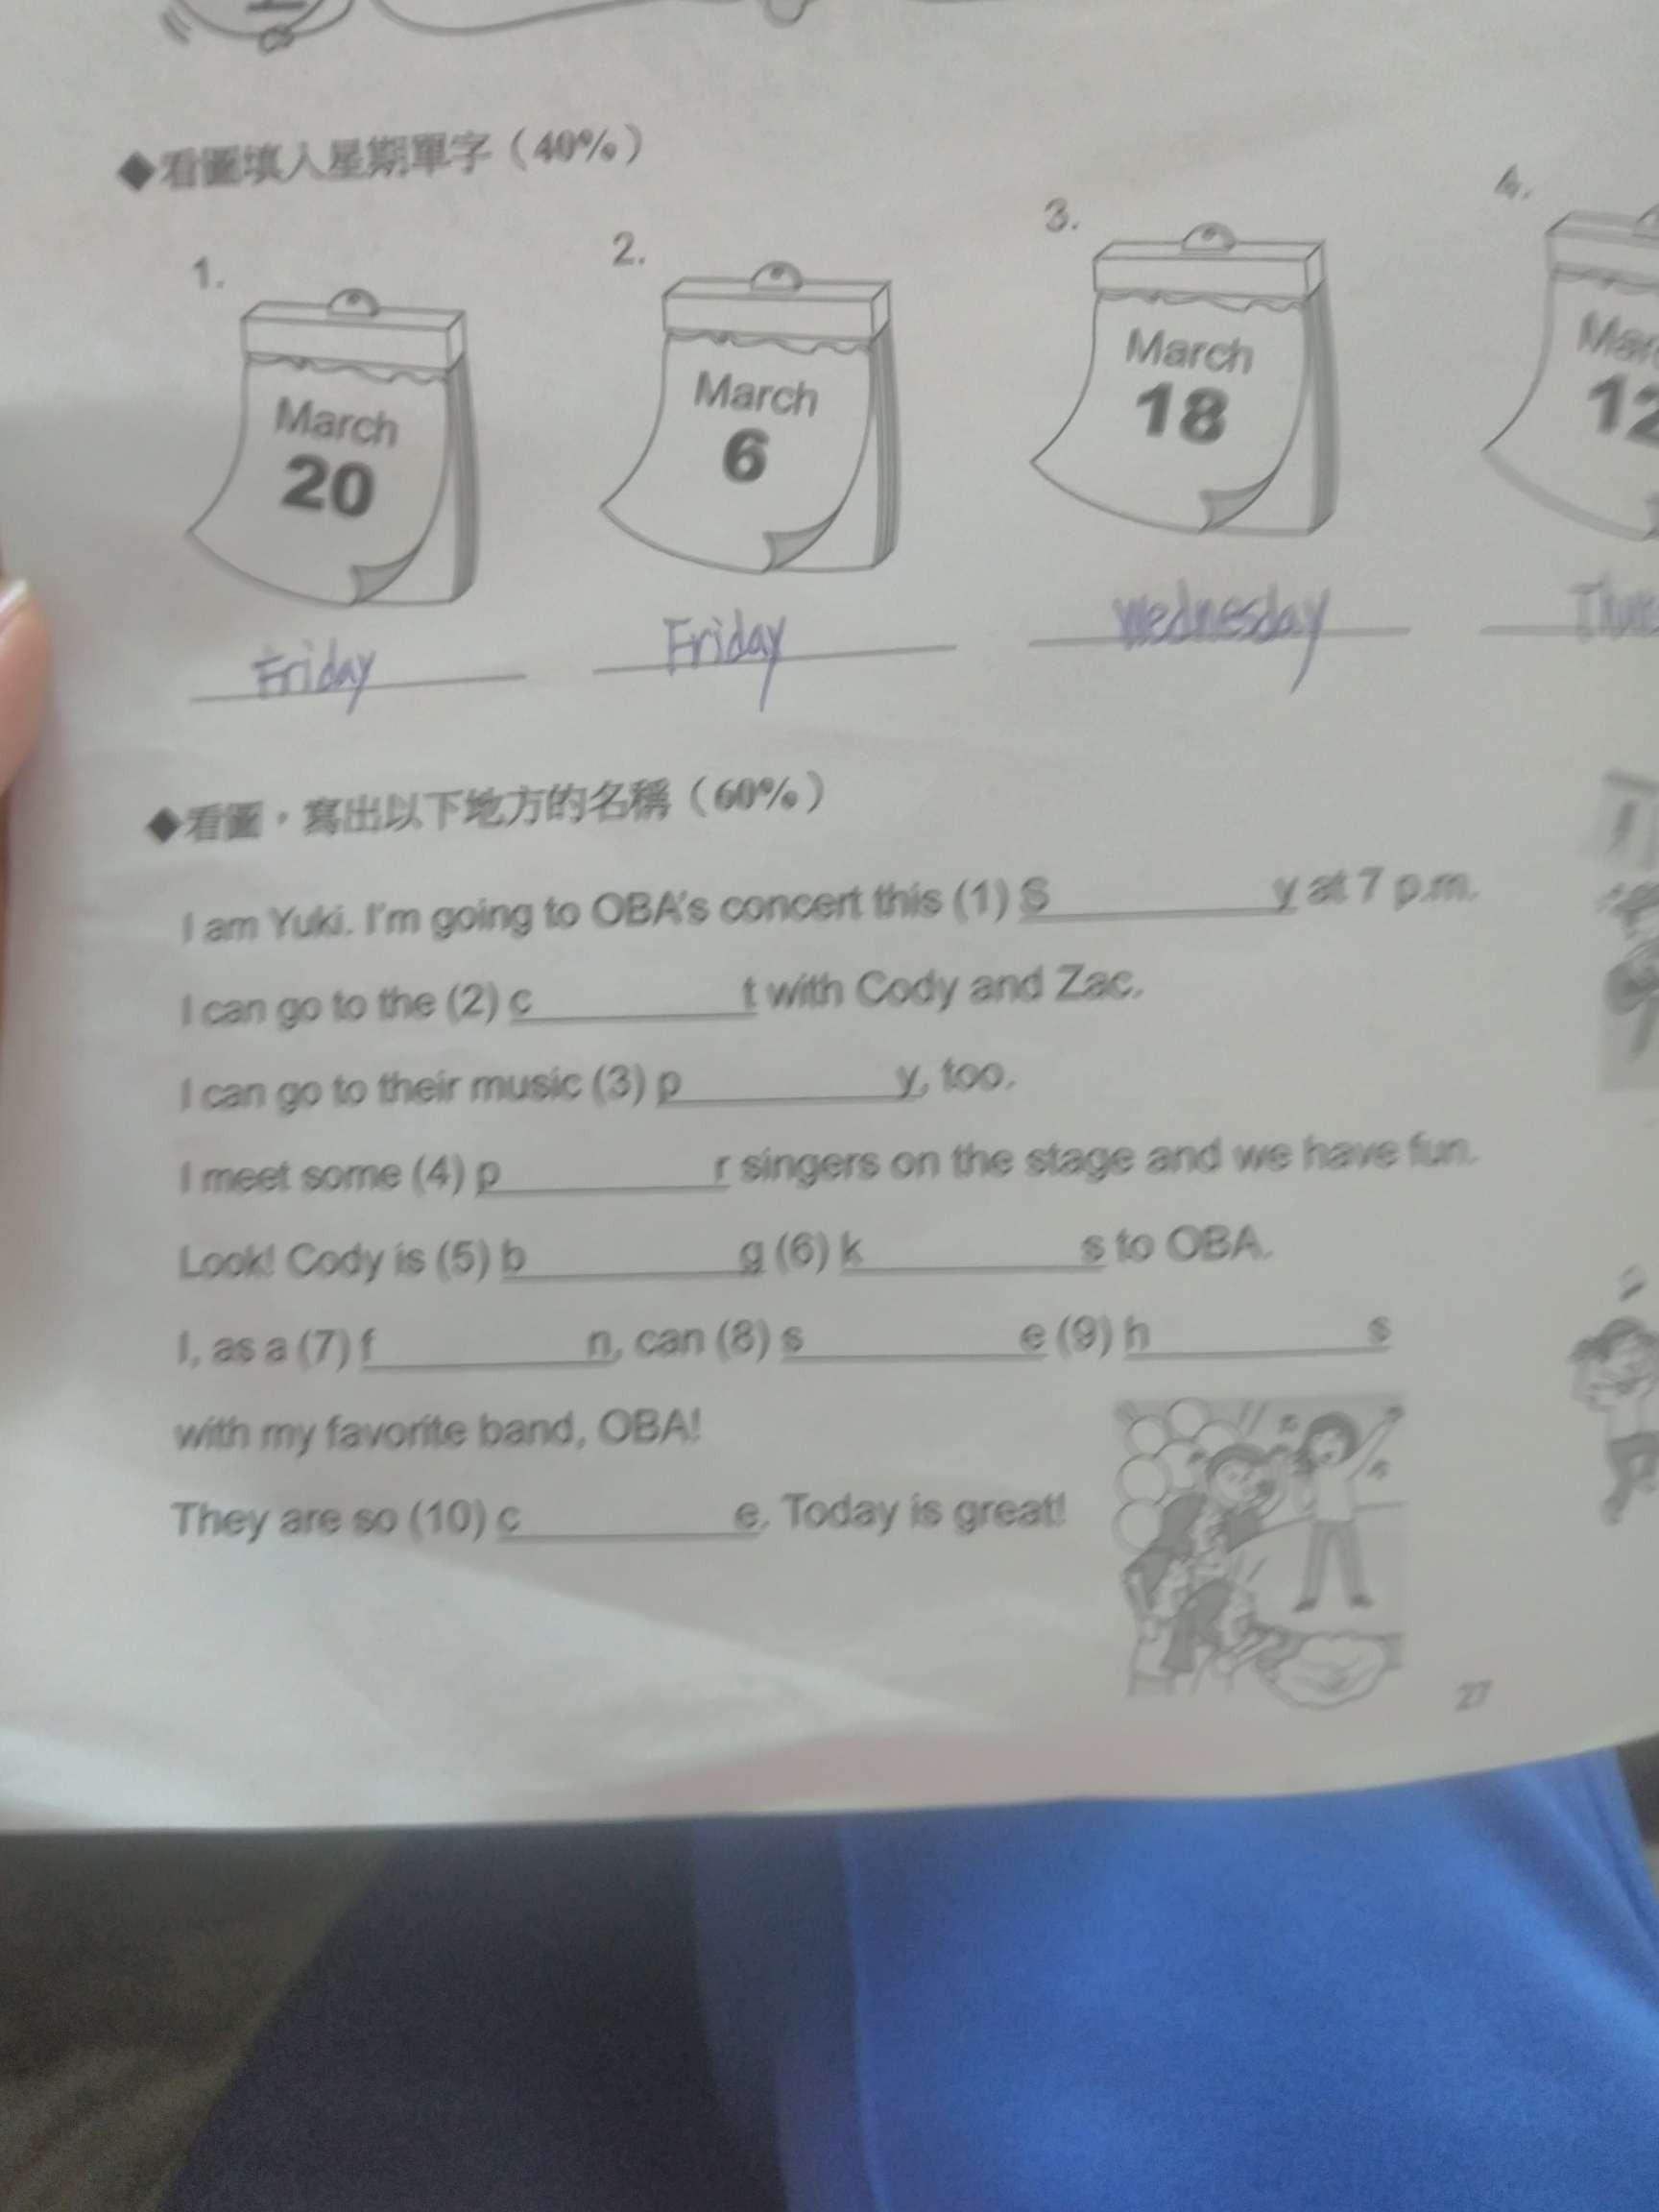 ◆看圖填入星期單字（40%）
1. 2. 3. 4.
March March March
20 6 18 12
Friday Friday Wednesday
◆看圖，寫出以下地方的名稱（60%）
I am Yuki. I'm going to OBA's concert this (1) S__________y at 7 p.m.
I can go to the (2) c__________t with Cody and Zac.
I can go to their music (3) p__________y, too.
I meet some (4) p__________r singers on the stage and we have fun.
Look! Cody is (5) b__________g (6) k__________s to OBA.
I, as a (7) f__________n, can (8) s__________e (9) h__________s
with my favorite band, OBA!
They are so (10) c__________e. Today is great!
27